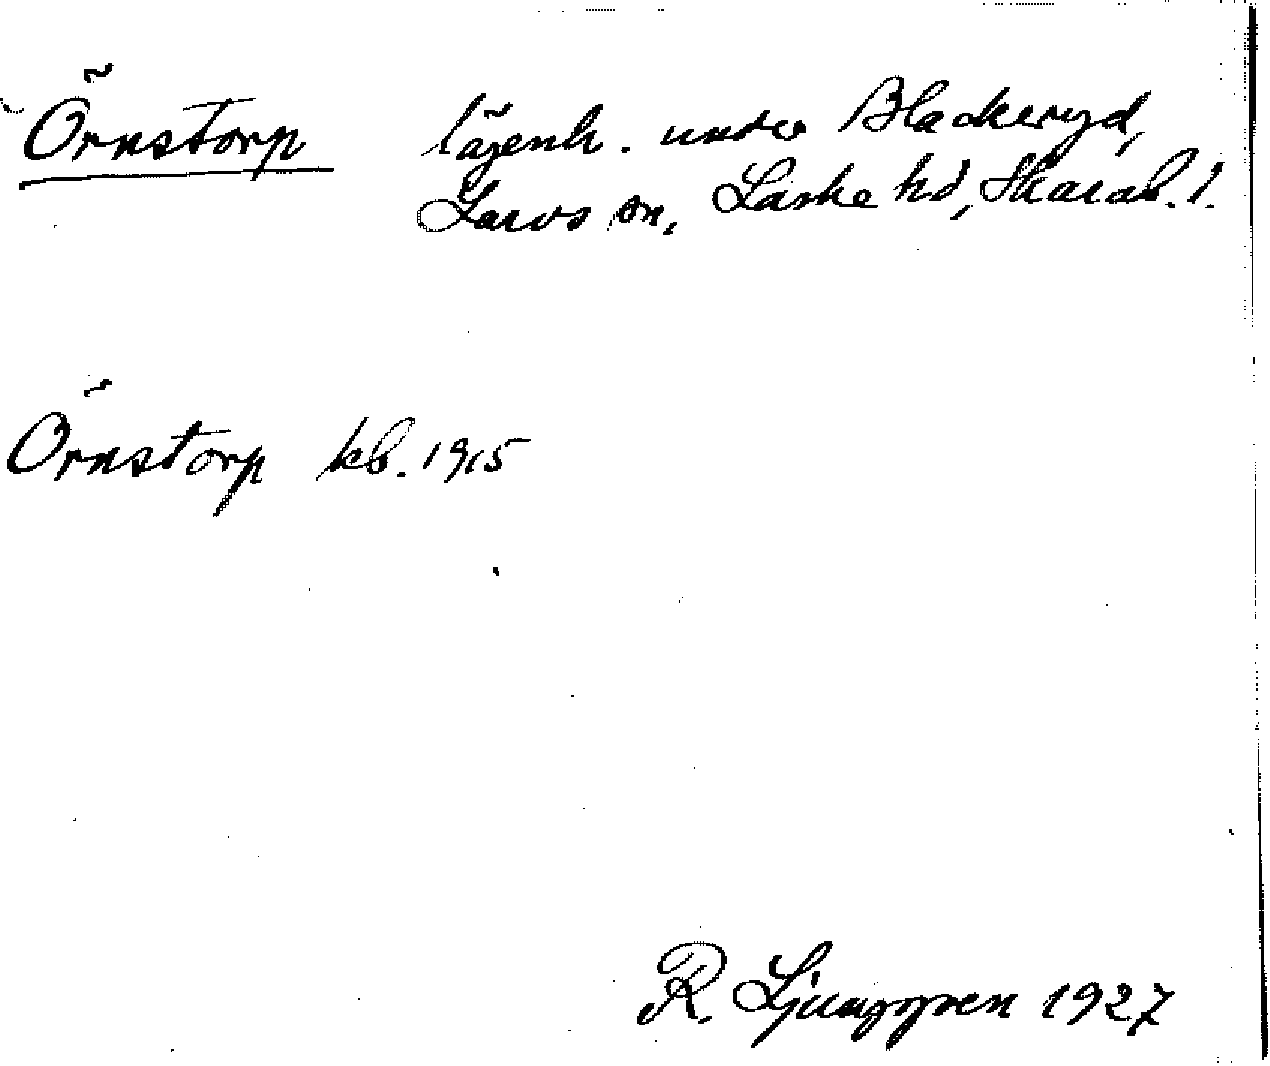 Örnstorp lägenh. under Blackeryd,
Larvs sn, Laske hd, Skarab. l.
Örnstorp kb. 1915
R. Ljunggren 1927